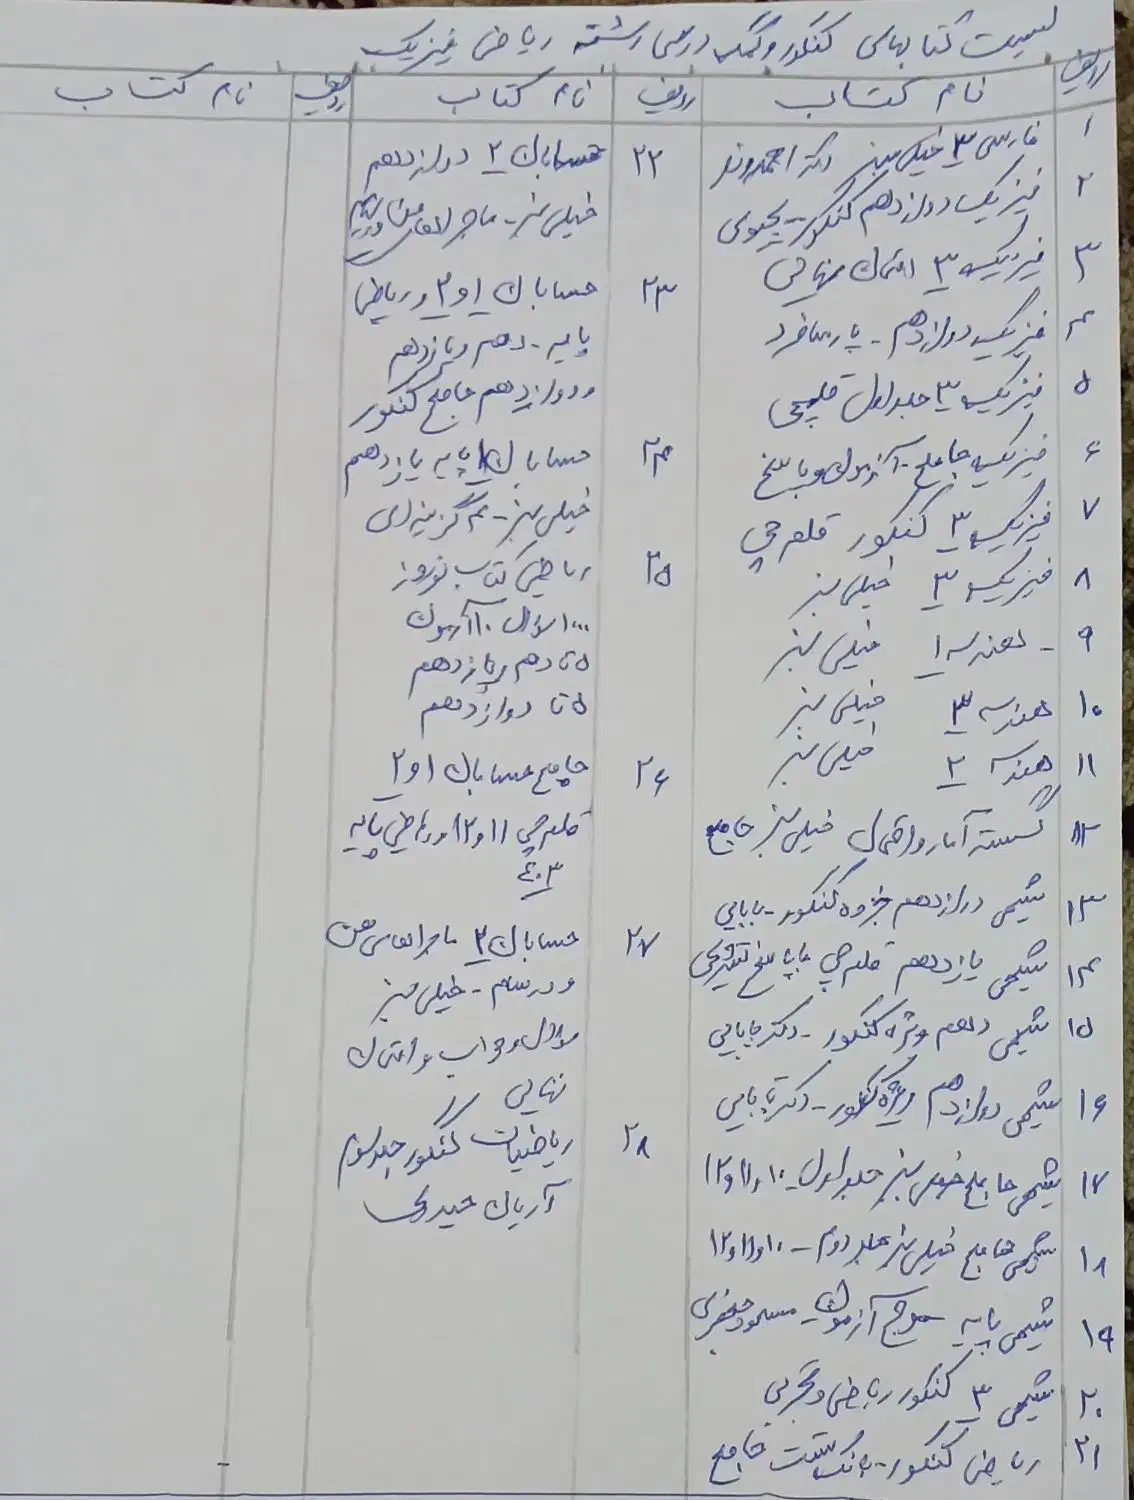 لیست کتابهای کنکور و کمک درسی رشته ریاضی فیزیک
ردیف نام کتاب ردیف نام کتاب ردیف نام کتاب
۱ فارسی ۳ خیلی سبز دکتر احمدوند
۲ فیزیک دوازدهم کنکور - یحیوی
۳ فیزیک ۳ امتحان نهایی
۴ فیزیک دوازدهم - پارسافرد
۵ فیزیک ۳ جلد اول قلمچی
۶ فیزیک جامع - آزمون و پاسخ
۷ فیزیک ۳ کنکور قلم چی
۸ فیزیک ۳ خیلی سبز
۹ - هندسه ۱ خیلی سبز
۱۰ هندسه ۳ خیلی سبز
۱۱ هندسه ۲ خیلی سبز
۱۲ گسسته آمار و احتمال خیلی سبز جامع
۱۳ شیمی دوازدهم جزوه کنکور - بابایی
۱۴ شیمی یازدهم قلم چی با پاسخ تشریحی
۱۵ شیمی دهم ویژه کنکور - دکتر بابایی
۱۶ شیمی دوازدهم ویژه کنکور - دکتر بابایی
۱۷ شیمی جامع خیلی سبز جلد اول - ۱۰ و ۱۱ و ۱۲
۱۸ شیمی جامع خیلی سبز جلد دوم - ۱۰ و ۱۱ و ۱۲
۱۹ شیمی پایه موج آزمون - مسعود جعفری
۲۰ شیمی ۳ کنکور ریاضی و تجربی
۲۱ ریاضی کنکور - بانک تست جامع
۲۲ حسابان ۲ دوازدهم
خیلی سبز - ماجراهای من و درسام
۲۳ حسابان ۱ و ۲ و ریاضی
پایه - دهم و یازدهم
و دوازدهم جامع کنکور
۲۴ حسابان ۱ پایه یازدهم
خیلی سبز - ۴ گزینه ای
۲۵ ریاضی کتاب نوروز
۱۰۰۰ سوال ۱۰ آزمون
۵ تا دهم و یازدهم
۵ تا دوازدهم
۲۶ جامع حسابان ۱ و ۲
قلم چی ۱۱ و ۱۲ و ریاضی پایه
۴۰۳
۲۷ حسابان ۲ ماجراهای من
و درسام - خیلی سبز
سوال و جواب و امتحان
نهایی //
۲۸ ریاضیات کنکور جلد سوم
آریان حیدری